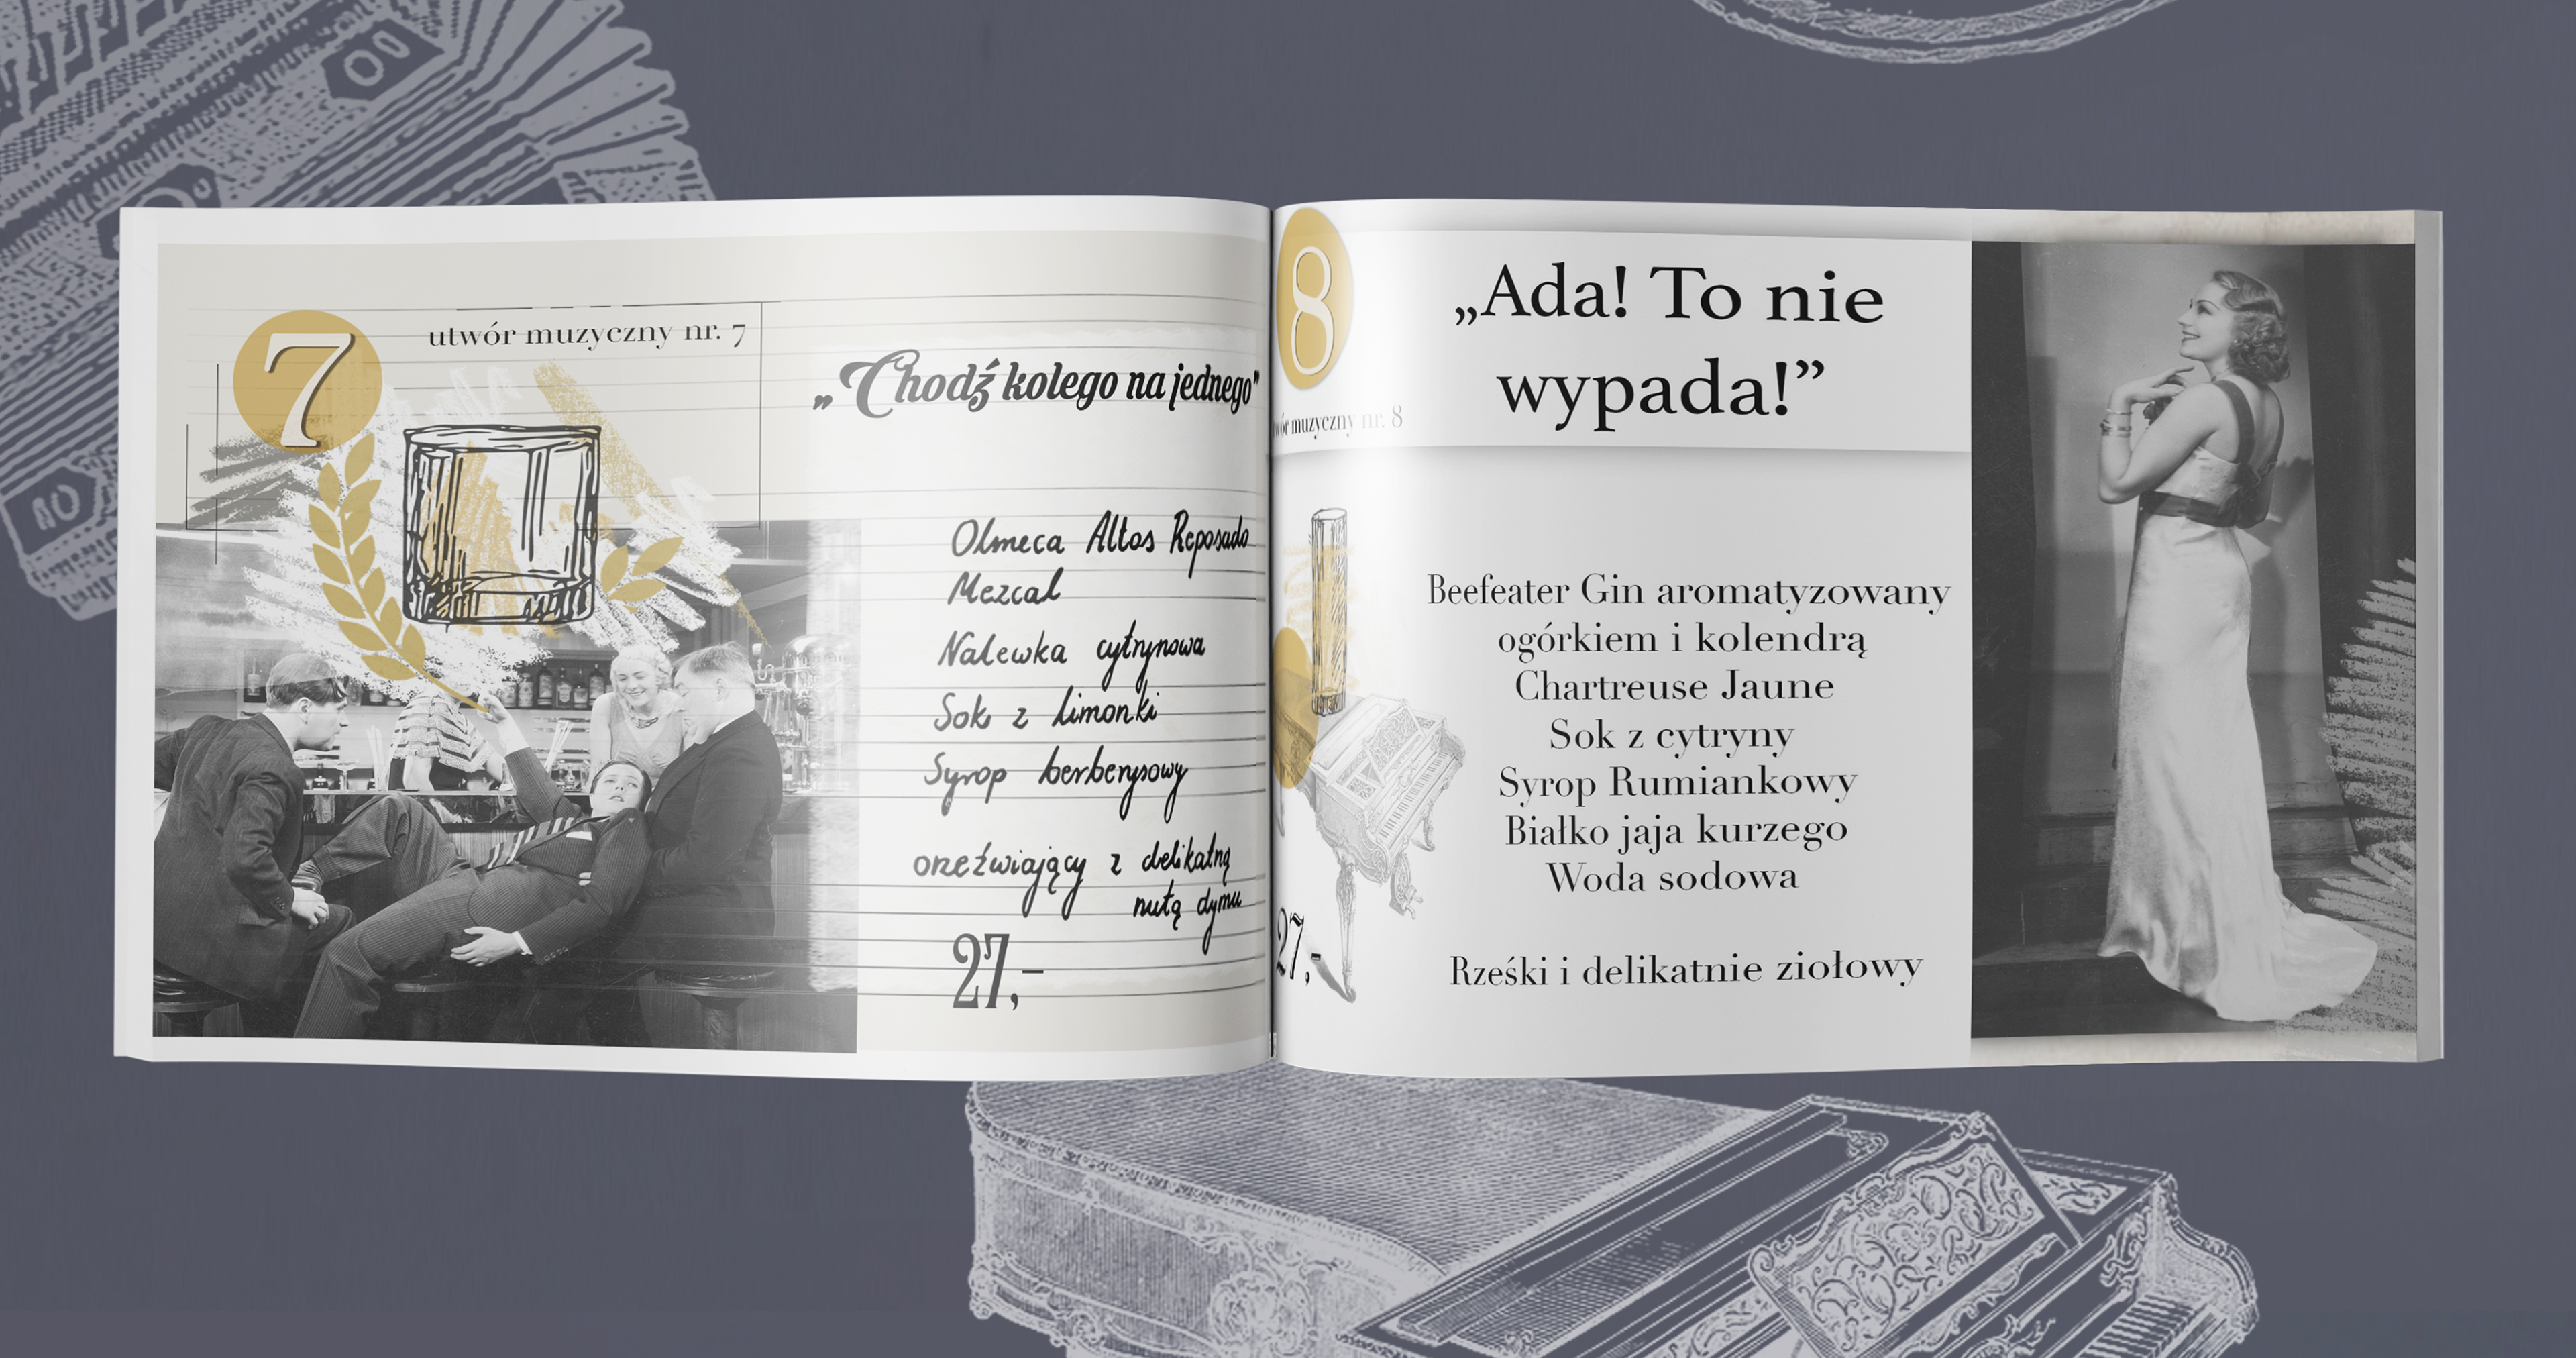 7
utwór muzyczny nr. 7
„Chodź kolego na jednego”
Olmeca Altos Reposado
Mezcal
Nalewka cytrynowa
Sok z limonki
Syrop berberysowy
orzeźwiający z delikatną
nutą dymu
27,-
8
muzyczny nr. 8
„Ada! To nie
wypada!”
Beefeater Gin aromatyzowany
ogórkiem i kolendrą
Chartreuse Jaune
Sok z cytryny
Syrop Rumiankowy
Białko jaja kurzego
Woda sodowa
Rześki i delikatnie ziołowy
27,-